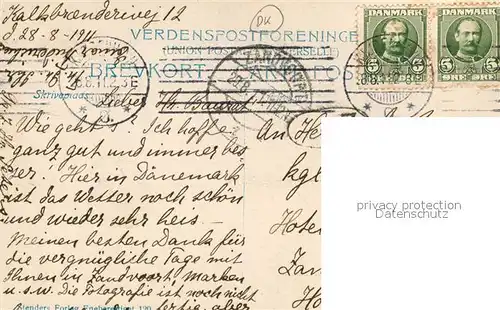 Kalkbrænderivej 12
d. 28-8-1911
VERDENSPOSTFORENINGE
(UNION POSTALE UNIVERSELLE)
BREVKORT
DK
DANMARK
5 ØRE 5
DANMARK
5 ØRE 5
ZANDVOORT
Skriveplads
Lieber Hr. Baurat!
Wie geht's? Ich hoffe
ganz gut und immer bes
ser! Hier in Dänemark
ist das Wetter noch schön
und wieder sehr heis –
Meinen besten Dank für
die vergnügliche Tage mit
Ihnen in Zandvoort, Marken
u.s.w. Die Fotografie ist noch nicht
fertig, aber
Stenders Forlag Eneberettiget 120
An He
kgl
Hote
Zan
H
privacy protection
Datenschutz